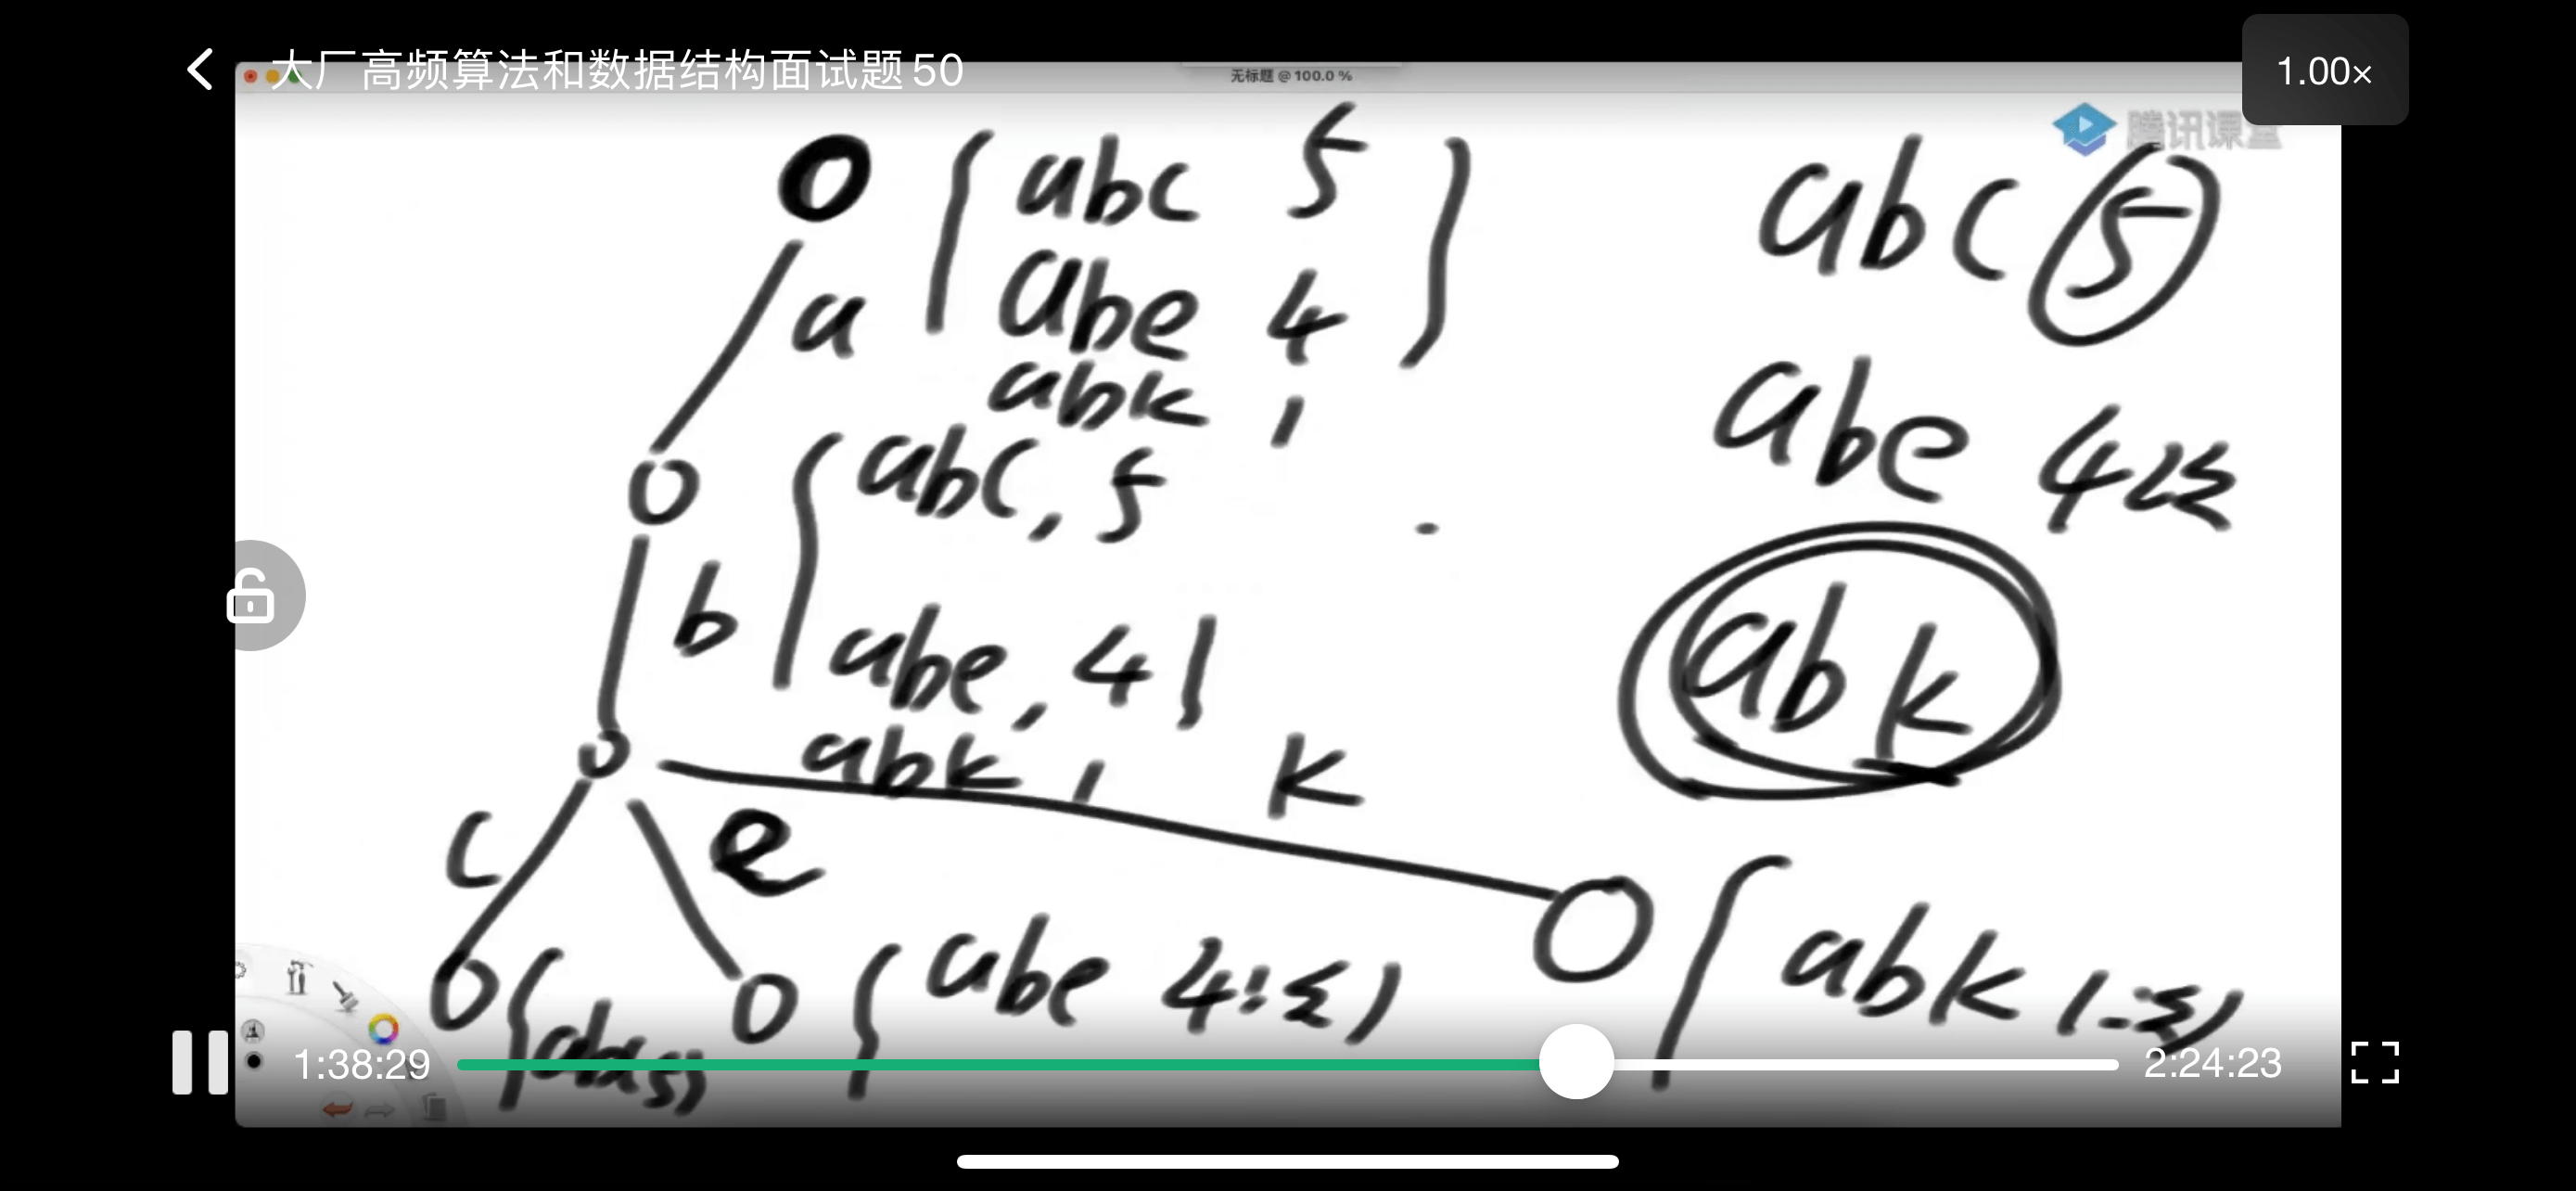 大厂高频算法和数据结构面试题50
1.00×
无标题 @ 100.0 %
腾讯课堂
abc 5
abe 4
abk 1
a
abc, 5
abe, 4
abk 1
b
k
c
e
abe 4次
abk 1次
abc 5
abe 4次
abk
1:38:29
2:24:23